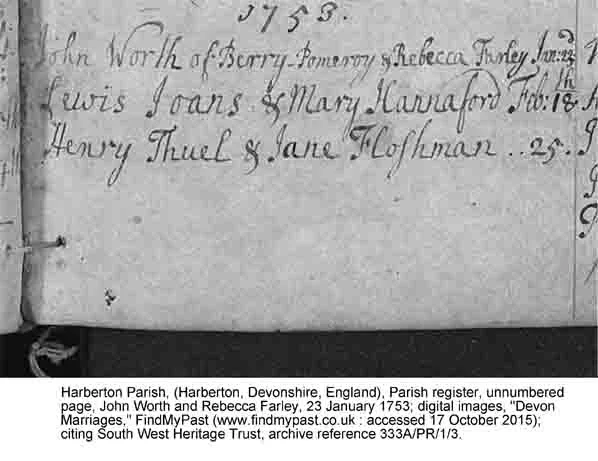 1753.
John Worth of Berry-Pomeroy & Rebecca Farley Jan: 23d
Lewis Joans & Mary Hannaford Feb: 18th
Henry Thuel & Jane Floshman .. 25.
Harberton Parish, (Harberton, Devonshire, England), Parish register, unnumbered
page, John Worth and Rebecca Farley, 23 January 1753; digital images, "Devon
Marriages," FindMyPast (www.findmypast.co.uk : accessed 17 October 2015);
citing South West Heritage Trust, archive reference 333A/PR/1/3.